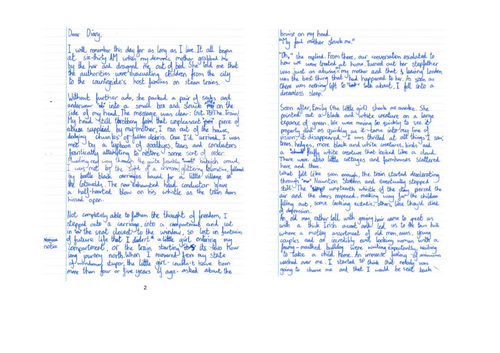 Dear Diary,
I will remember this day for as long as I live. It all began
at six-thirty AM when my demonic mother grabbed me
by the hair and dragged me out of bed. She told me that
the authorities were evacuating children from the city
to the countryside's host families on steam trains.
Without further ado, she packed a pair of socks and
underwear into a small box and smacked me on the
side of my head. The message was clear: Get to the train!
My head still throbbing from that unpleasant piece of
abuse supplied by my mother, I ran out of the house,
dodging chunks of debris. Once I'd arrived, I was
met by a of evacuees, teachers and conductors
frantically attempting to some sort of order.
Making my way through the quite
I was met by the sight of a
by petite black carriages bound for a little village in
the Cotswolds. The now exhausted head conductor gave
a half-hearted blow on his whistle as the train doors
heaved open.
Not completely able to fathom the thought of freedom, I
stepped onto a carriage, into a compartment and sat
in the seat closest to the window, so lost in
of future life that I didn't a little girl entering my
compartment, or the train starting its slow
long journey north. When I from my state
of stupor, the little girl couldn't have been
more than four or five years of age asked about the
2
bruise on my head.
"My foul mother struck me."
"Oh," she replied. From there, our conversation escalated to
how we were treated at home. Turned out her stepfather
was just as abusive my mother and that leaving London
was the best thing that had happened to her. As soon as
there was nothing left to talk about, I fell into a
dreamless sleep.
Soon after, Emily (the little girl) shook me awake. She
pointed out a black and white creature on a large
expanse of green. We were moving so quickly to see it
properly and as quickly as it came into my line of
vision, it disappeared. I was thrilled at all things I saw:
trees, hedges, more black and white creatures, birds and
a fluffy white creature that looked like a cloud.
There were also little cottages and farmhouses scattered
here and there.
What felt like soon enough, the train started decelerating
through our Station and eventually stopped
still. The unpleasant whistle of the play pierced the
air and the doors opened, making way for the children
filing out, some looking ecstatic, when some
An old man, rather tall with greying hair came to greet us
with a thick Irish accent and led us to the town hall
where a motley assortment of old men, women, young
couples and an incredibly evil looking woman with a
were waiting expectantly waiting
to take a child home. An immense feeling of
washed over me. I started to think that nobody was
going to choose me and that I would be sent back